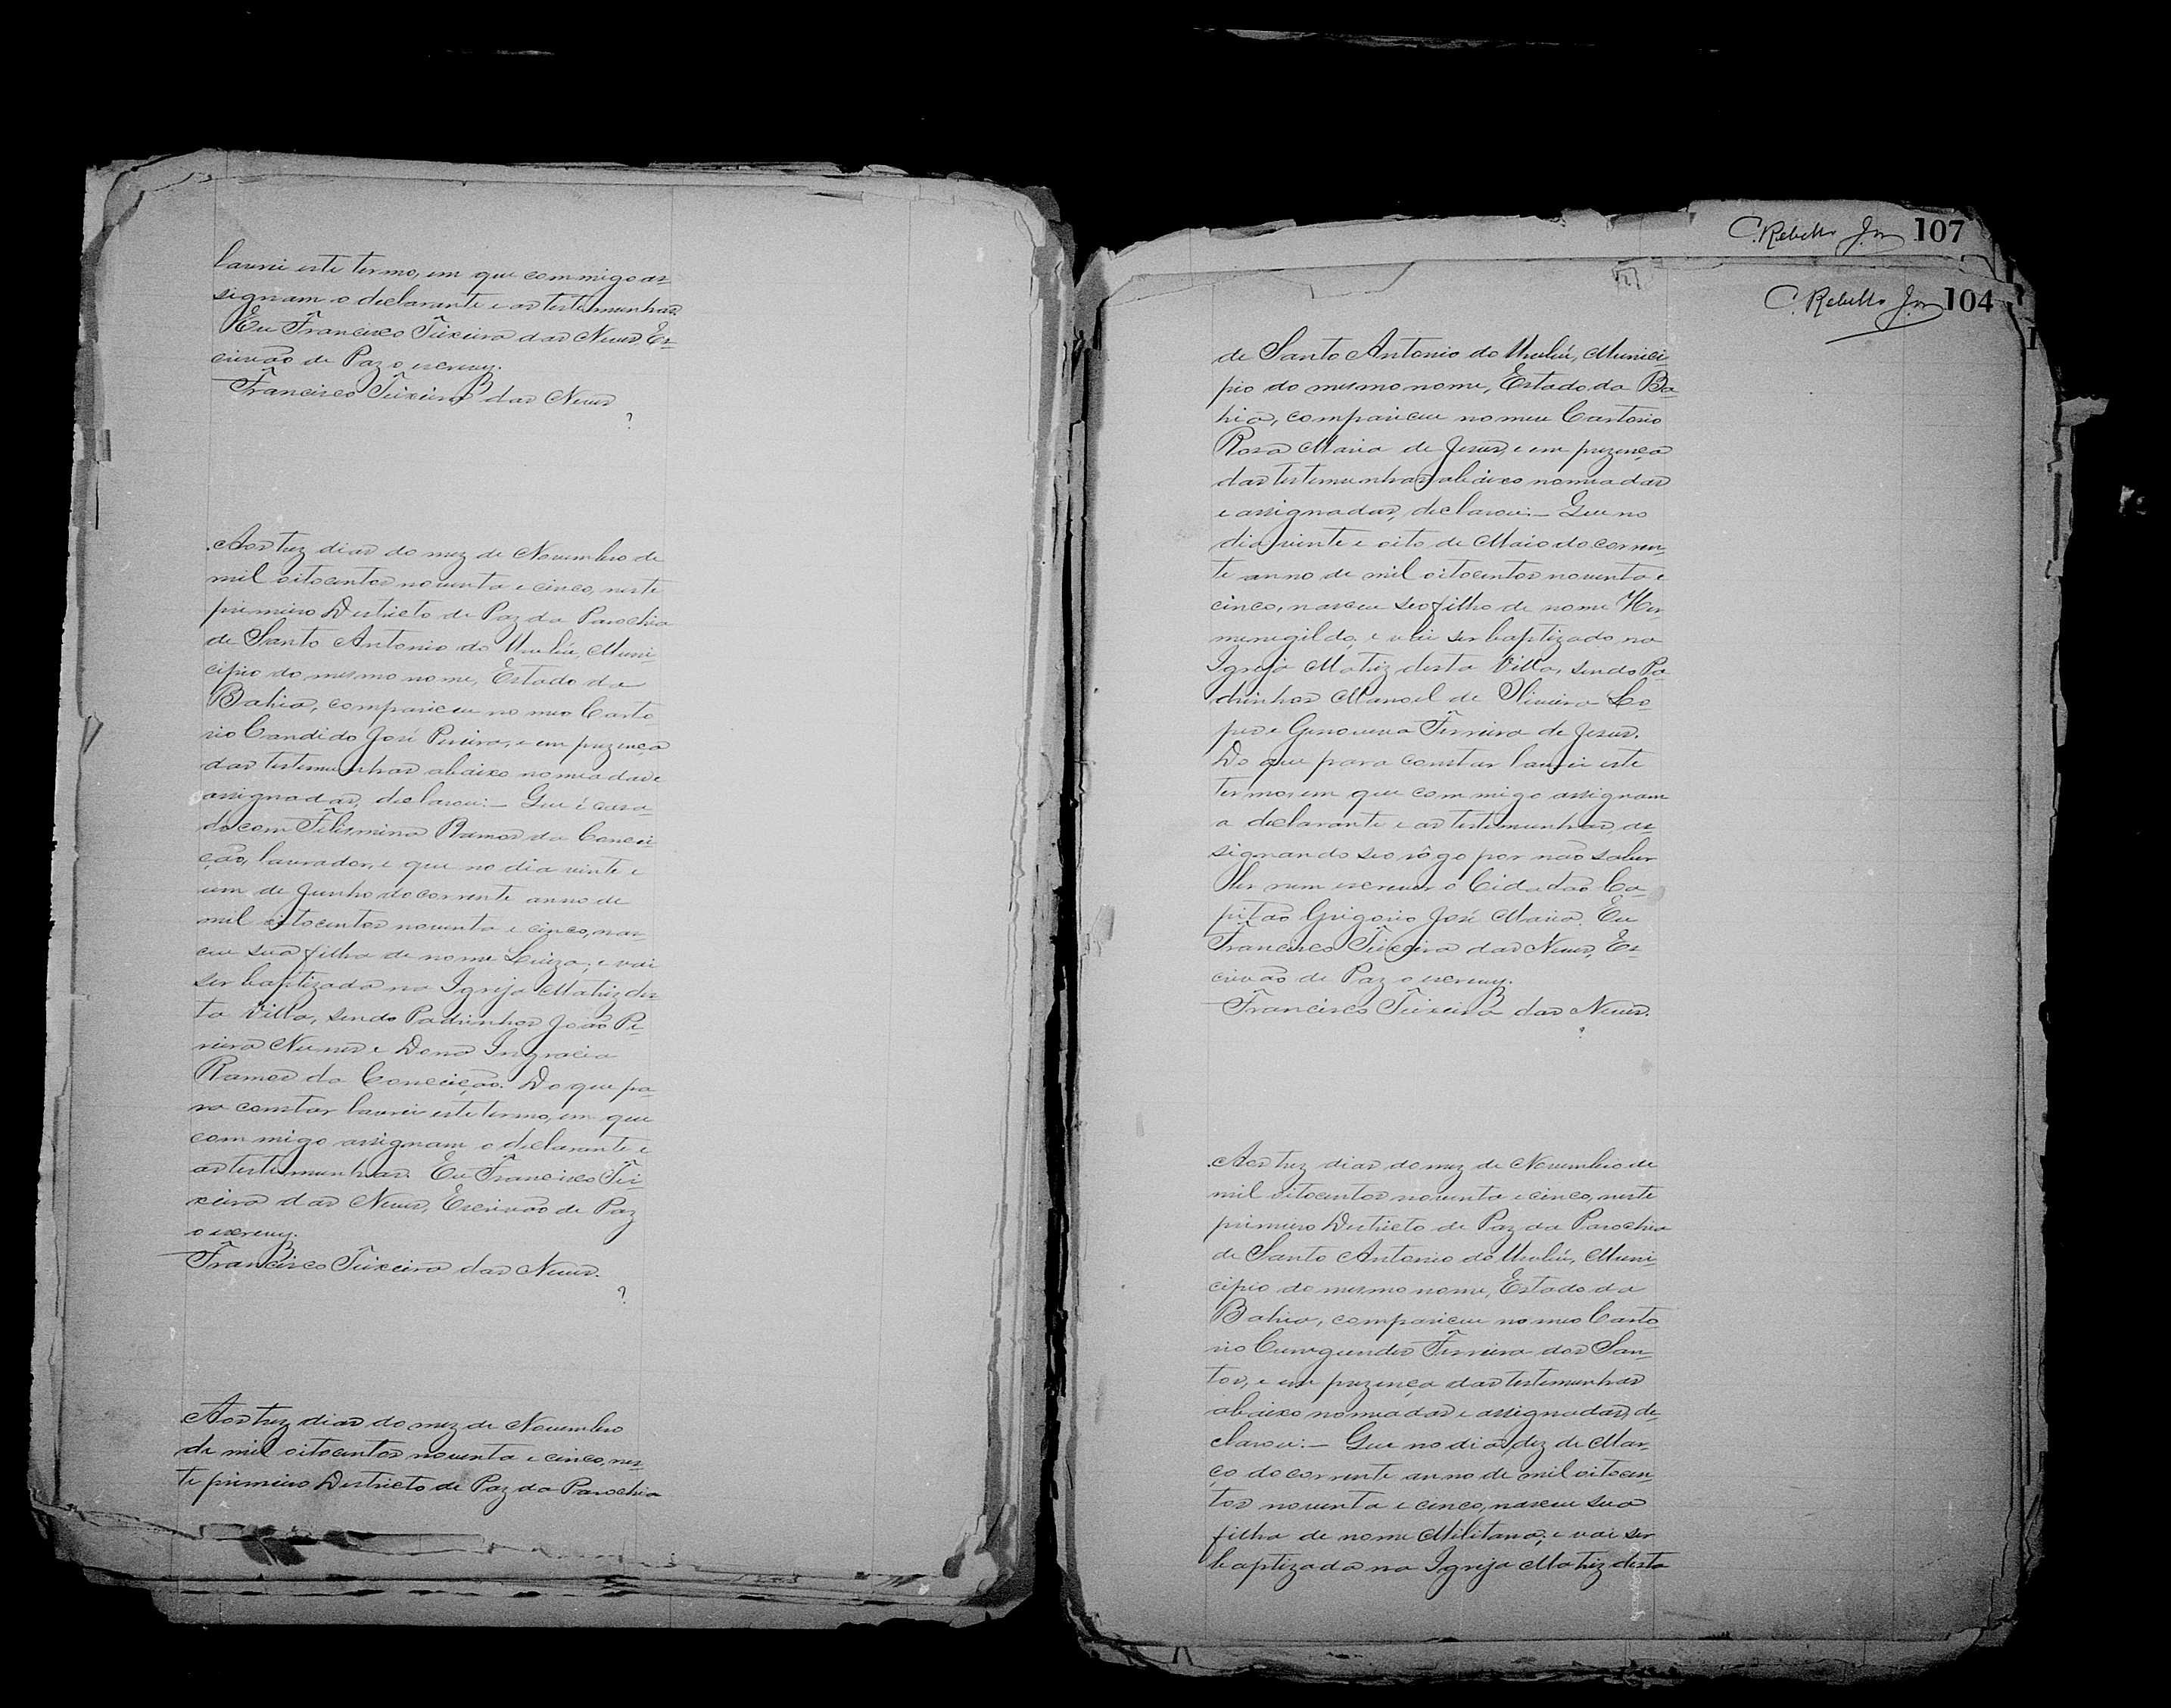 lavrei este termo, em que commigo as-
signam o declarante e as testemunhas.
Eu Francisco Teixeira das Neves, Es-
crivão de Paz o escrevy.
Francisco Teixeira das Neves
Aos trez dias do mez de Novembro de
mil oitocentos noventa e cinco, neste
primeiro Destricto de Paz da Parochia
de Santo Antonio do Urubú, Muni-
cipio do mesmo nome, Estado da
Bahia, compareceu no meo Carto-
rio Candido José Pereira, e em prezença
das testemunhas abaixo nomeadas e
assignadas, declarou:- Que é casa-
do com Felismina Ramos da Concei-
ção, lavrador, e que no dia vinte e
um de Junho do corrente anno de
mil oitocentos noventa e cinco, nas-
ceu sua filha de nome Luiza; e vai
ser baptizada na Igreja Matriz des-
ta Villa, sendo Padrinhos João Pe-
reira Nunes e Dona Ingracia
Ramos da Conceição. Do que pa-
ra constar lavrei este termo, em que
com migo assignam o declarante e
as testemunhas. Eu Francisco Tei-
xeira das Neves, Escrivão de Paz
o escrevy.
Francisco Teixeira das Neves.
Aos trez dias do mez de Novembro
de mil oitocentos noventa e cinco, nes-
te primeiro Destricto de Paz da Parochia
C. Rebello Jor 107
C. Rebello Jor 104
de Santo Antonio do Urubú, Munici-
pio do mesmo nome, Estado da Ba-
hia, compareceu no meu Cartorio
Rosa Maria de Jesus, e em prezença
das testemunhas abaixo nomeadas
e assignadas, declarou:- Que no
dia vinte e oito de Maio do corren-
te anno de mil oitocentos noventa e
cinco, nasceu seo filho de nome Her-
menegildo, e vai ser baptizado na
Igreja Matriz desta Villa, sendo Pa-
drinhos Manoel de Oliveira Lo-
pes e Genoveva Ferreira de Jesus.
Do que para constar lavrei este
termo, em que com migo assignam
a declarante e as testemunhas as-
signando seo rôgo por não saber
ler nem escrever o Cidadão Ca-
pitão Grigorio José Maria. Eu
Francisco Teixeira das Neves, Es-
crivão de Paz o escrevy.
Francisco Teixeira das Neves.
Aos trez dias do mez de Novembro de
mil oitocentos noventa e cinco, neste
primeiro Destricto de Paz da Parochia
de Santo Antonio do Urubú, Muni-
cipio do mesmo nome, Estado da
Bahia, compareceu no meo Carto-
rio Cunegundes Ferreira dos San-
tos, e em prezença das testemunhas
abaixo nomeadas e assignadas, de-
clarou:- Que no dia dez de Mar-
ço do corrente anno de mil oitocen-
tos noventa e cinco, nasceu sua
filha de nome Militana; e vai ser
baptizada na Igreja Matriz desta